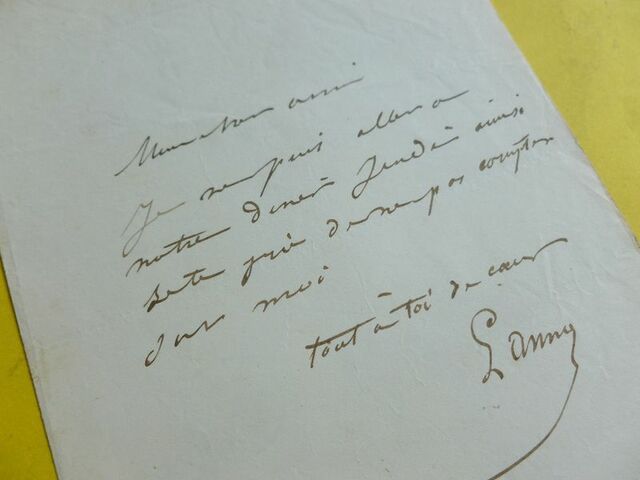 Mon cher ami
Je ne puis aller a
notre diner Jeudi ainsi
je te prie de ne pas compter
sur moi
tout à toi de coeur
Lanno